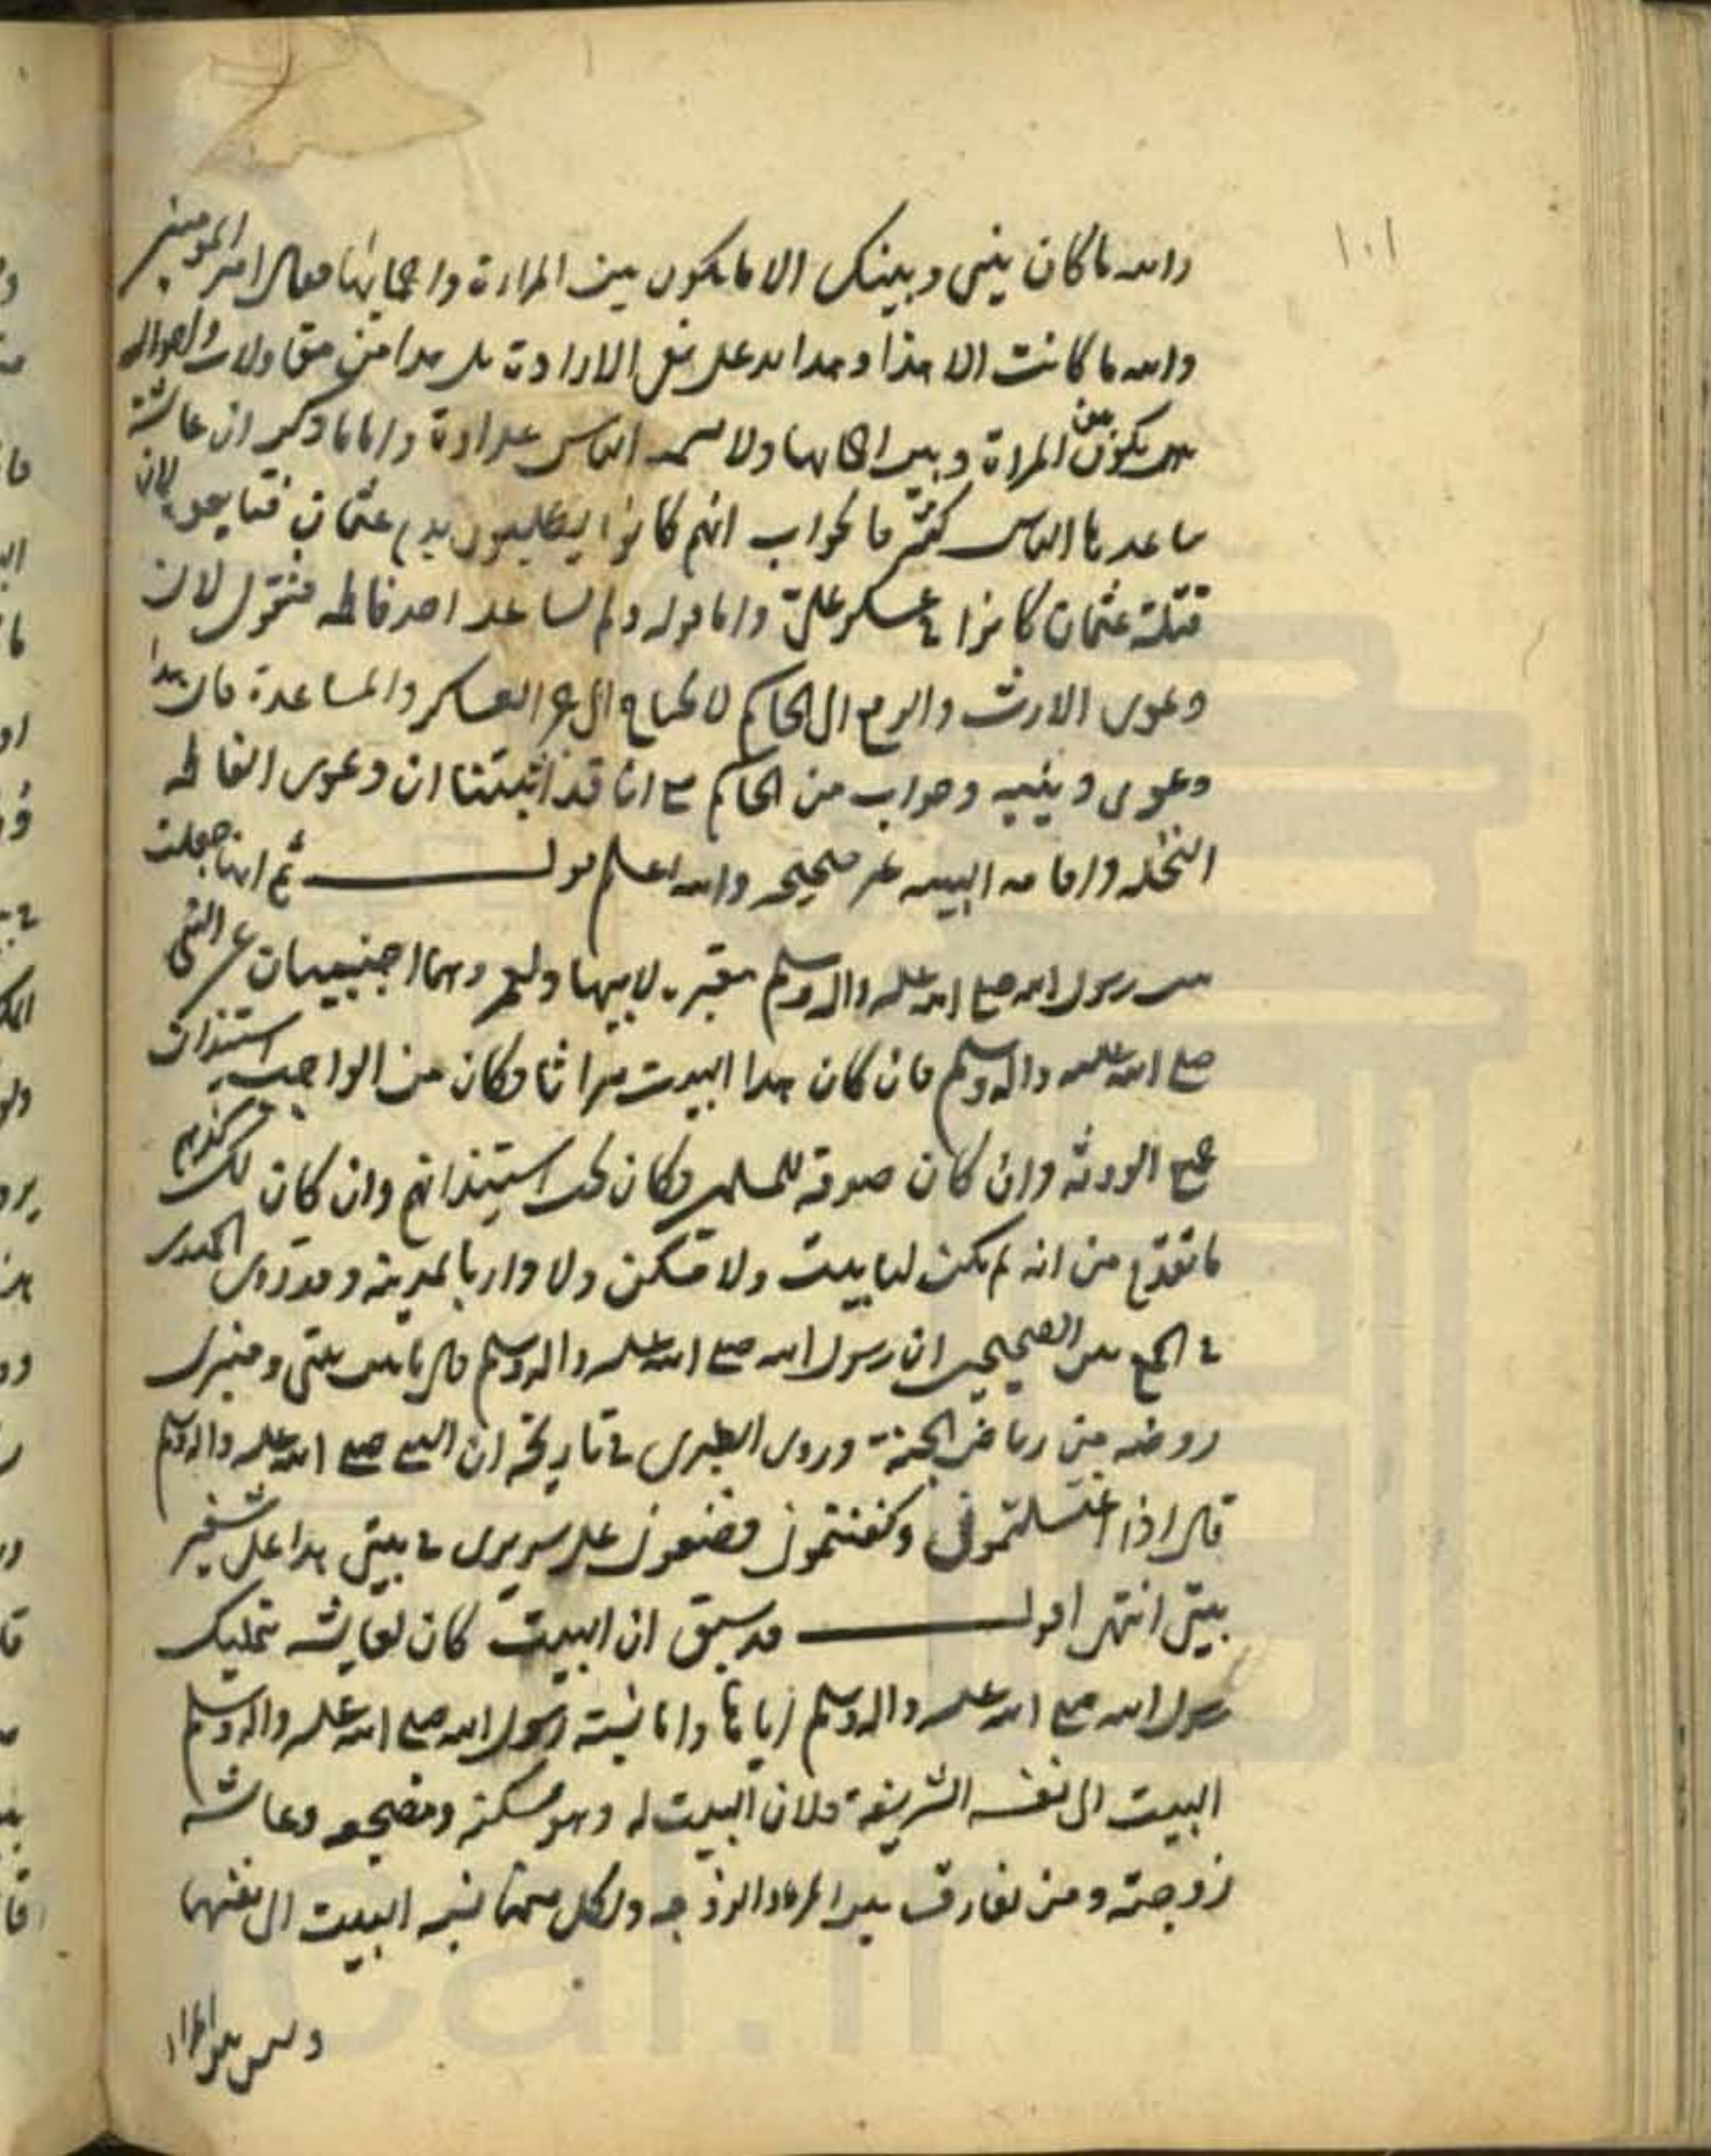 ١٠١
والله ما كان بيني وبينك الا ما يكون بين المراة واحمائها فقال امير المومنين
والله ما كانت الا هذا وهذا يدل على نفي الارادة بل هذا من مقاولات واحوال
يكون بين المراة وبين احمائها ولا يسمه الناس عداوة واما ما ذكر ان عائشة
ساعدها الناس فالجواب انهم كانوا يطلبون بدم عثمان لان
قتلة عثمان كانوا في عسكر علي واما قوله ولم يساعد احد فاطمه فنقول لان
دعوى الارث والرفع الى الحاكم لا يحتاج الى العساكر والمساعدة فان هذا
دعوى وبينه وجواب من الحاكم مع انا قد اثبتنا ان دعوى الفاطمه
النحله واقامه البينه غير صحيحه والله اعلم قوله ثم انها جعلت
بيت رسول الله صلى الله عليه واله وسلم مقبره لابيها ولعمر وهما اجنبيان عن النبي
صلى الله عليه واله وسلم فان كان هذا البيت ميراثا فكان من الواجب استيذان
جميع الورثه وان كان صدقة للمسلمين فكان يجب استيذانهم وان كان
ما تقدم من انه لم يكن لها بيت ولا مسكن ولا دار بالمدينه وقد روى الحميدي
في الجمع بين الصحيحين ان رسول الله صلى الله عليه واله وسلم قال ما بين بيتي ومنبري
روضه من رياض الجنة وروى الطبري في تاريخه ان النبي صلى الله عليه واله وسلم
قال اذا غسلتموني وكفنتموني فضعوني على سريري في بيتي هذا على شفير
بيتي انتهى اقول قد سبق ان البيت كان لعايشه بتمليك
رسول الله صلى الله عليه واله وسلم اياها واما نسبة رسول الله صلى الله عليه واله وسلم
البيت الى نفسه الشريفة فلان البيت له وهو مسكنه ومضجعه وعائشه
زوجته ومن يفارق بين المرء والزوجه ولكل منهما نسبه البيت الى نفسها